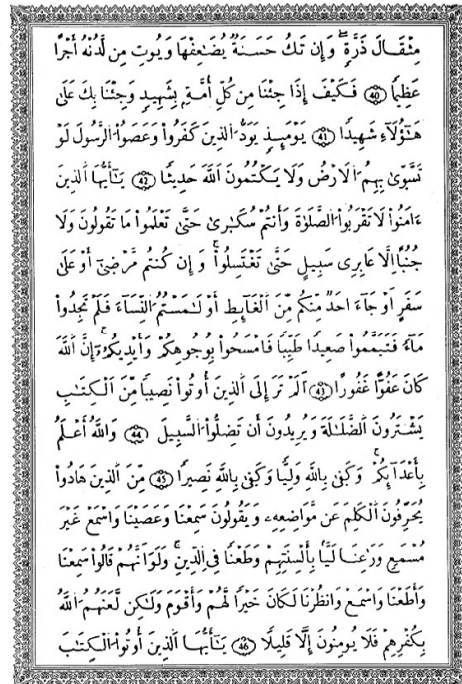 مِثْقَالَ ذَرَّةٍۖ وَإِن تَكُ حَسَنَةٌ يُضَٰعِفْهَا وَيُوتِ مِن لَّدُنْهُ أَجْرًا
عَظِيمًا 40 فَكَيْفَ إِذَا جِئْنَا مِن كُلِّ أُمَّةٍۭ بِشَهِيدٍ وَجِئْنَا بِكَ عَلَىٰ
هَٰٓؤُلَآءِ شَهِيدًا 41 يَوْمَئِذٍ يَوَدُّ الَّذِينَ كَفَرُوا وَعَصَوُا الرَّسُولَ لَوْ
تَسَّوَّىٰ بِهِمُ الَارْضُ وَلَا يَكْتُمُونَ اللَّهَ حَدِيثًا 42 يَٰٓأَيُّهَا الَّذِينَ
ءَامَنُوا لَا تَقْرَبُوا الصَّلَوٰةَ وَأَنتُمْ سُكَٰرَىٰ حَتَّىٰ تَعْلَمُوا مَا تَقُولُونَ وَلَا
جُنُبًا اِلَّا عَابِرِي سَبِيلٍ حَتَّىٰ تَغْتَسِلُواۚ وَإِن كُنتُم مَّرْضَىٰٓ أَوْ عَلَىٰ
سَفَرٍ اَوْ جَآءَ احَدٌ مِّنكُم مِّنَ الْغَآئِطِ أَوْ لَٰمَسْتُمُ النِّسَآءَ فَلَمْ تَجِدُوا
مَآءً فَتَيَمَّمُوا صَعِيدًا طَيِّبًا فَامْسَحُوا بِوُجُوهِكُمْ وَأَيْدِيكُمُۥٓۚ إِنَّ اللَّهَ
كَانَ عَفُوًّا غَفُورًا 43 اَلَمْ تَرَ إِلَى الَّذِينَ أُوتُوا نَصِيبًا مِّنَ الْكِتَٰبِ
يَشْتَرُونَ الضَّلَٰلَةَ وَيُرِيدُونَ أَن تَضِلُّوا السَّبِيلَ 44 وَاللَّهُ أَعْلَمُ
بِأَعْدَآئِكُمْۚ وَكَفَىٰ بِاللَّهِ وَلِيًّا وَكَفَىٰ بِاللَّهِ نَصِيرًا 45 مِّنَ الَّذِينَ هَادُوا
يُحَرِّفُونَ الْكَلِمَ عَن مَّوَاضِعِهِۦ وَيَقُولُونَ سَمِعْنَا وَعَصَيْنَا وَاسْمَعْ غَيْرَ
مُسْمَعٍ وَرَٰعِنَا لَيًّا بِأَلْسِنَتِهِمْ وَطَعْنًا فِي الدِّينِۚ وَلَوَ اَنَّهُمْ قَالُوا سَمِعْنَا
وَأَطَعْنَا وَاسْمَعْ وَانظُرْنَا لَكَانَ خَيْرًا لَّهُمْ وَأَقْوَمَ وَلَٰكِن لَّعَنَهُمُ اللَّهُ
بِكُفْرِهِمْ فَلَا يُومِنُونَ إِلَّا قَلِيلًا 46 يَٰٓأَيُّهَا الَّذِينَ أُوتُوا الْكِتَٰبَ